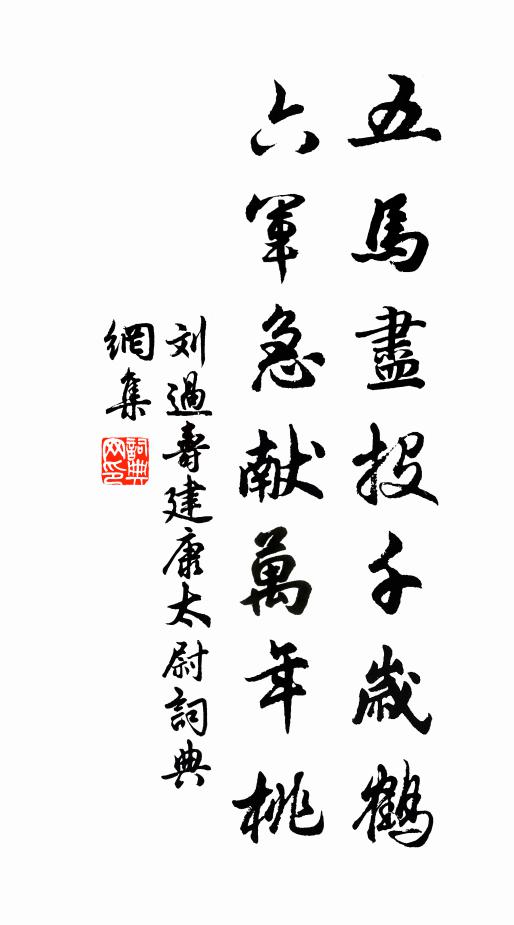 五馬盡投千歲鶴
六軍急献萬年桃
刘過壽建康太尉詞典
網集
詞典網印